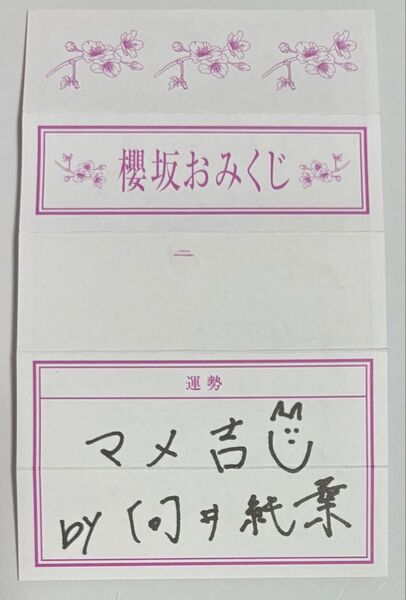 櫻坂おみくじ
二
運勢
マメ吉
by 向井純葉